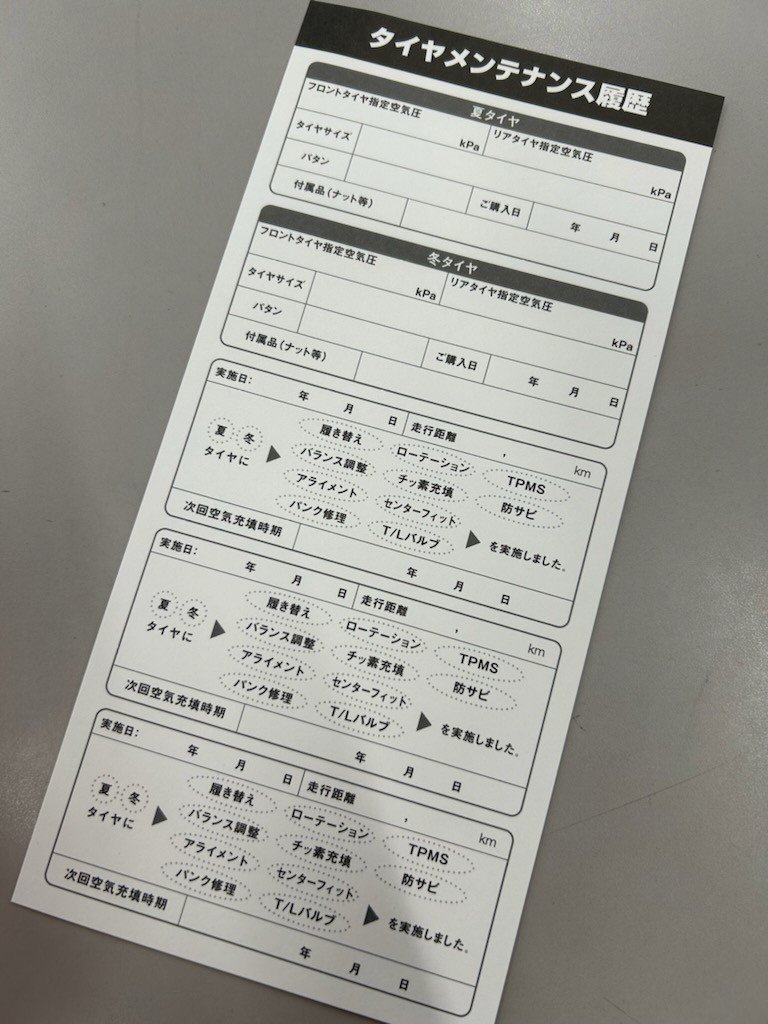 タイヤメンテナンス履歴
夏タイヤ
フロントタイヤ指定空気圧 kPa リアタイヤ指定空気圧 kPa
タイヤサイズ
パタン
付属品(ナット等) ご購入日 年 月 日
冬タイヤ
フロントタイヤ指定空気圧 kPa リアタイヤ指定空気圧 kPa
タイヤサイズ
パタン
付属品(ナット等) ご購入日 年 月 日
実施日: 年 月 日 走行距離 , km
夏 冬 タイヤに ▶
履き替え ローテーション TPMS
バランス調整 チッ素充填 防サビ
アライメント センターフィット
パンク修理 T/Lバルブ ▶ を実施しました。
次回空気充填時期 年 月 日
実施日: 年 月 日 走行距離 , km
夏 冬 タイヤに ▶
履き替え ローテーション TPMS
バランス調整 チッ素充填 防サビ
アライメント センターフィット
パンク修理 T/Lバルブ ▶ を実施しました。
次回空気充填時期 年 月 日
実施日: 年 月 日 走行距離 , km
夏 冬 タイヤに ▶
履き替え ローテーション TPMS
バランス調整 チッ素充填 防サビ
アライメント センターフィット
パンク修理 T/Lバルブ ▶ を実施しました。
次回空気充填時期 年 月 日